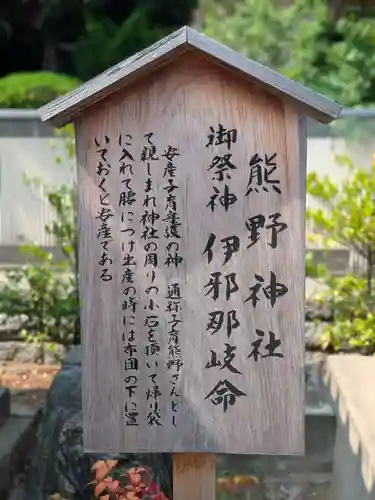 熊野神社
御祭神 伊邪那岐命
安産子育守護の神 通称子育熊野さんとし
て親しまれ神社の周りの小石を頂いて帰り袋
に入れて腰につけ出産の時には布団の下に置
いておくと安産である